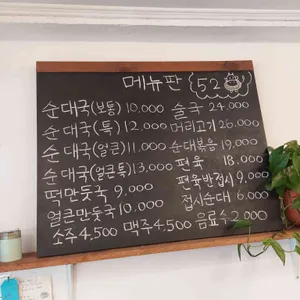 메뉴판 520
순대국(보통) 10,000 술국 24,000
순대국(특) 12,000 머리고기 26,000
순대국(얼큰) 11,000 순대볶음 19,000
순대국(얼큰특) 13,000 편육 18,000
떡만둣국 9,000 편육반접시 9,000
얼큰만둣국 10,000 접시순대 6,000
소주 4,500 맥주 4,500 음료수 2,000